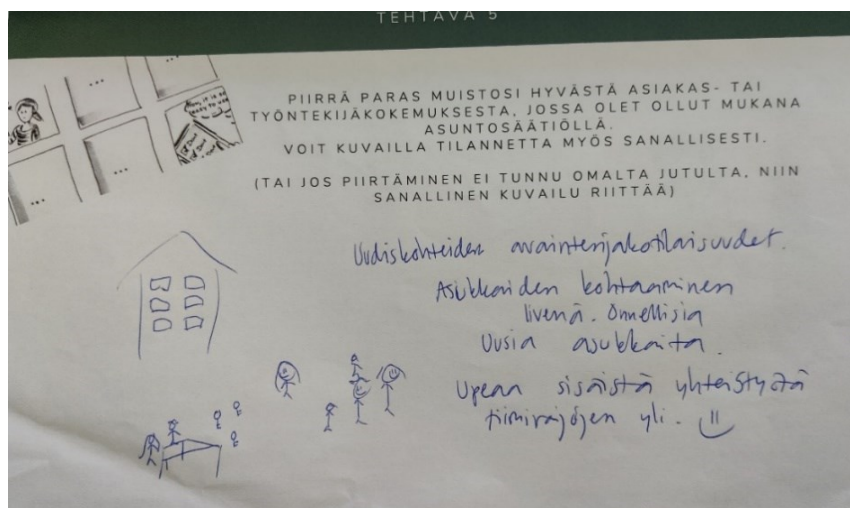 TEHTÄVÄ 5
PIIRRÄ PARAS MUISTOSI HYVÄSTÄ ASIAKAS- TAI
TYÖNTEKIJÄKOKEMUKSESTA, JOSSA OLET OLLUT MUKANA
ASUNTOSÄÄTIÖLLÄ.
VOIT KUVAILLA TILANNETTA MYÖS SANALLISESTI.
(TAI JOS PIIRTÄMINEN EI TUNNU OMALTA JUTULTA, NIIN
SANALLINEN KUVAILU RIITTÄÄ)
Uudiskohteiden avaintenjakotilaisuudet.
Asukkaiden kohtaaminen
livenä. Onnellisia
Uusia asukkaita.
Upeaa sisäistä yhteistyötä
tiimirajojen yli.